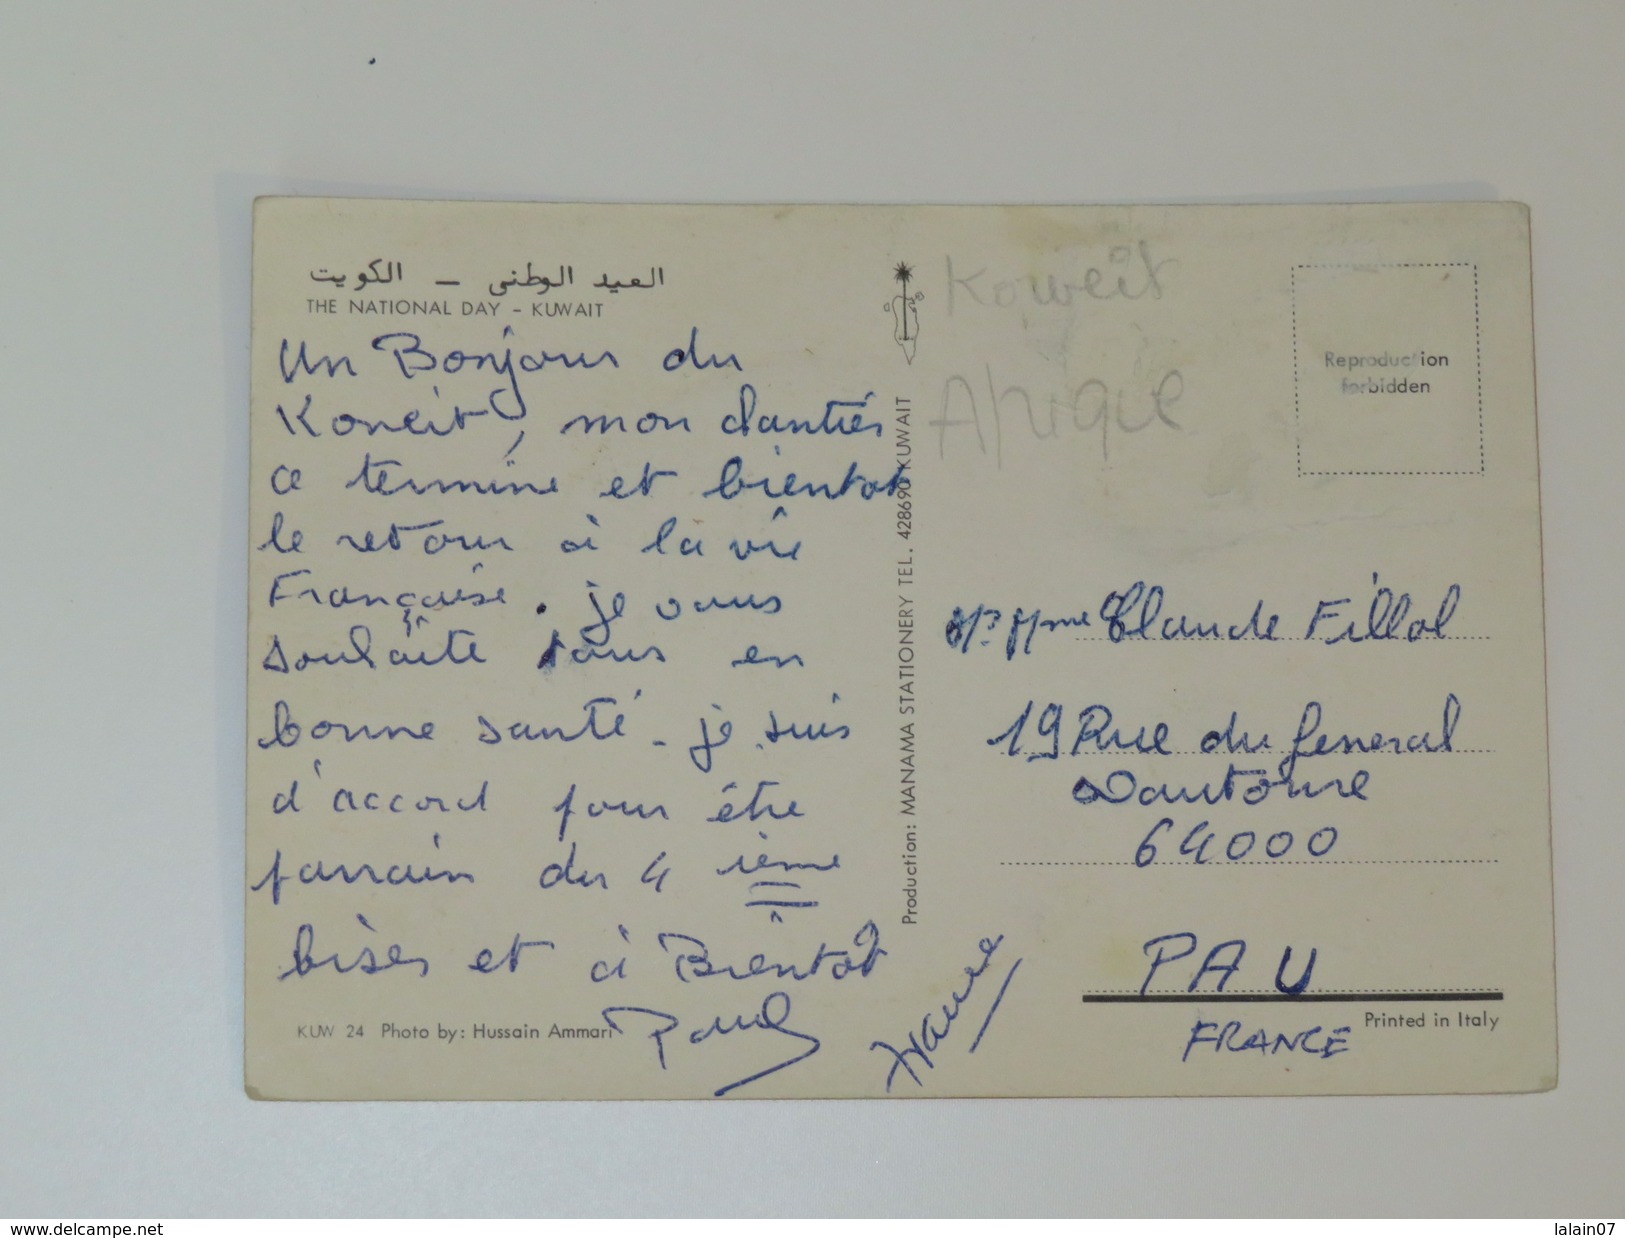 العيد الوطني — الكويت
THE NATIONAL DAY – KUWAIT
Un Bonjour du
Koneit, mon chantier
ce termine et bientot
le retour à la vie
Française. je vous
souhaite tous en
bonne santé – je suis
d'accord pour être
parrain du 4 ième
bises et à Bientot
Paul
KUW 24 Photo by: Hussain Ammari
Production: MANAMA STATIONERY TEL. 428690 KUWAIT
Koweit
Afrique
Reproduction
forbidden
Mme Claude Fillol
19 Rue du General
64000
PAU
FRANCE
Printed in Italy
www.delcampe.net
lalain07